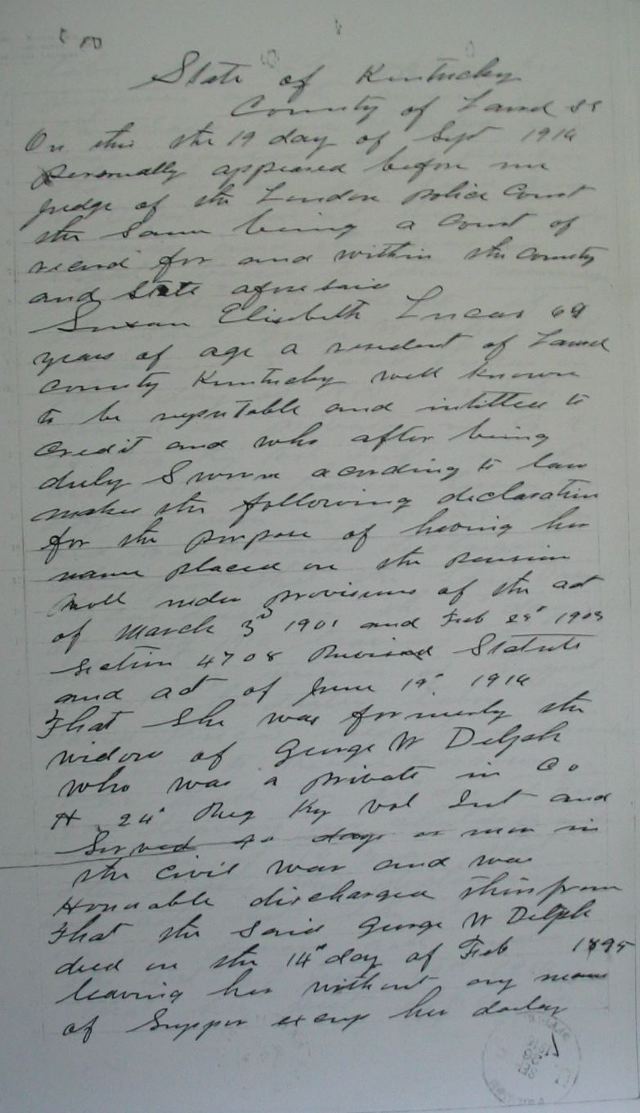 State of Kentucky
County of Laurel ss
On this the 19 day of Sept 1916
personally appeared before me
judge of the London Police Court
the same being a court of
record for and within the county
and State afore said
Susan Elisebeth Lucas 69
years of age a resident of Laurel
county Kentucky well known
to be reputable and intitled to
credit and who after being
duly Sworn acording to law
makes the following declaration
for the purpose of having her
name placed on the pension
roll under provisions of the act
of March 3rd 1901 and Feb 28" 1903
Section 4708 Revised Statute
and act of June 19" 1916
That She was formerly the
widow of George W Delph
who was a private in Co
H 24" Reg Ky vol Inf and
Served 90 days or more in
the civil war and was
Honorable discharged
That the Said George W Delph
died on the 14" day of Feb 1895
leaving her without any means
of Suppor excep her